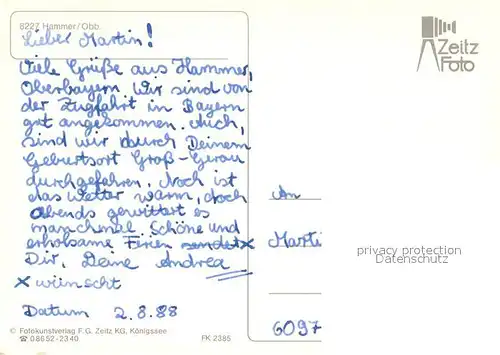 8227 Hammer/Obb.
Lieber Martin!
Viele Grüße aus Hammer,
Oberbayern. Wir sind von
der Zugfahrt in Bayern
gut angekommen. Auch,
sind wir durch Deinem
Geburtsort Groß-Gerau
durchgefahren. Noch ist
das Wetter warm, doch
Abends gewittert es
manchmal. Schöne und
erholsame Ferien sendet x
Dir, Deine Andrea
x wünscht
Datum 2.8.88
© Fotokunstverlag F.G. Zeitz KG, Königssee
☎ 08652-2340
FK 2385
Zeitz
Foto
An
Marti
privacy protection
Datenschutz
6097